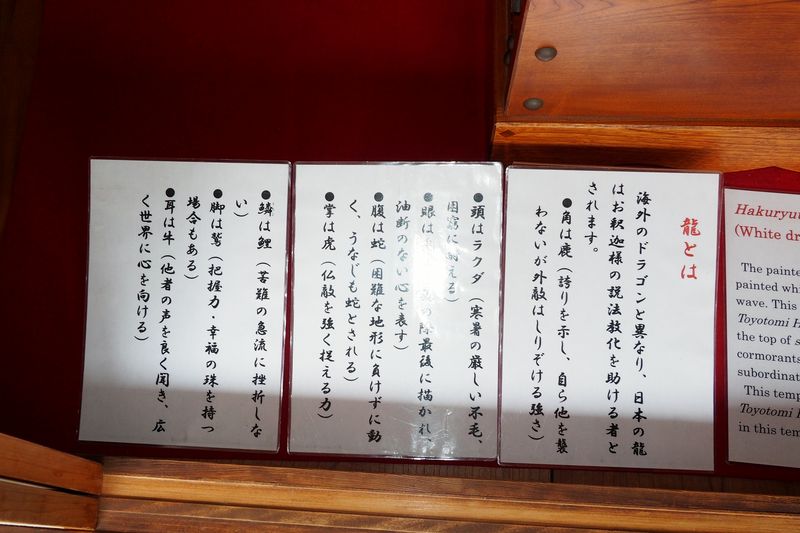 龍とは
海外のドラゴンと異なり、日本の龍
はお釈迦様の説法教化を助ける者と
されます。
●角は鹿（誇りを示し、自ら他を襲
わないが外敵はしりぞける強さ）
●頭はラクダ（寒暑の厳しい不毛、
困窮に耐える）
●眼は
の際最後に描かれ、
油断のない心を表す）
●腹は蛇（困難な地形に負けずに動
く、うなじも蛇とされる）
●掌は虎（仏敵を強く捉える力）
●鱗は鯉（苦難の急流に挫折しな
い）
●脚は鷲（把握力・幸福の珠を持つ
場合もある）
●耳は牛（他者の声を良く聞き、広
く世界に心を向ける）
Hakuryu
(White dr
The painte
painted whi
wave. This
Toyotomi H
the top of s
cormorants
subordinat
This temp
Toyotomi H
in this tem